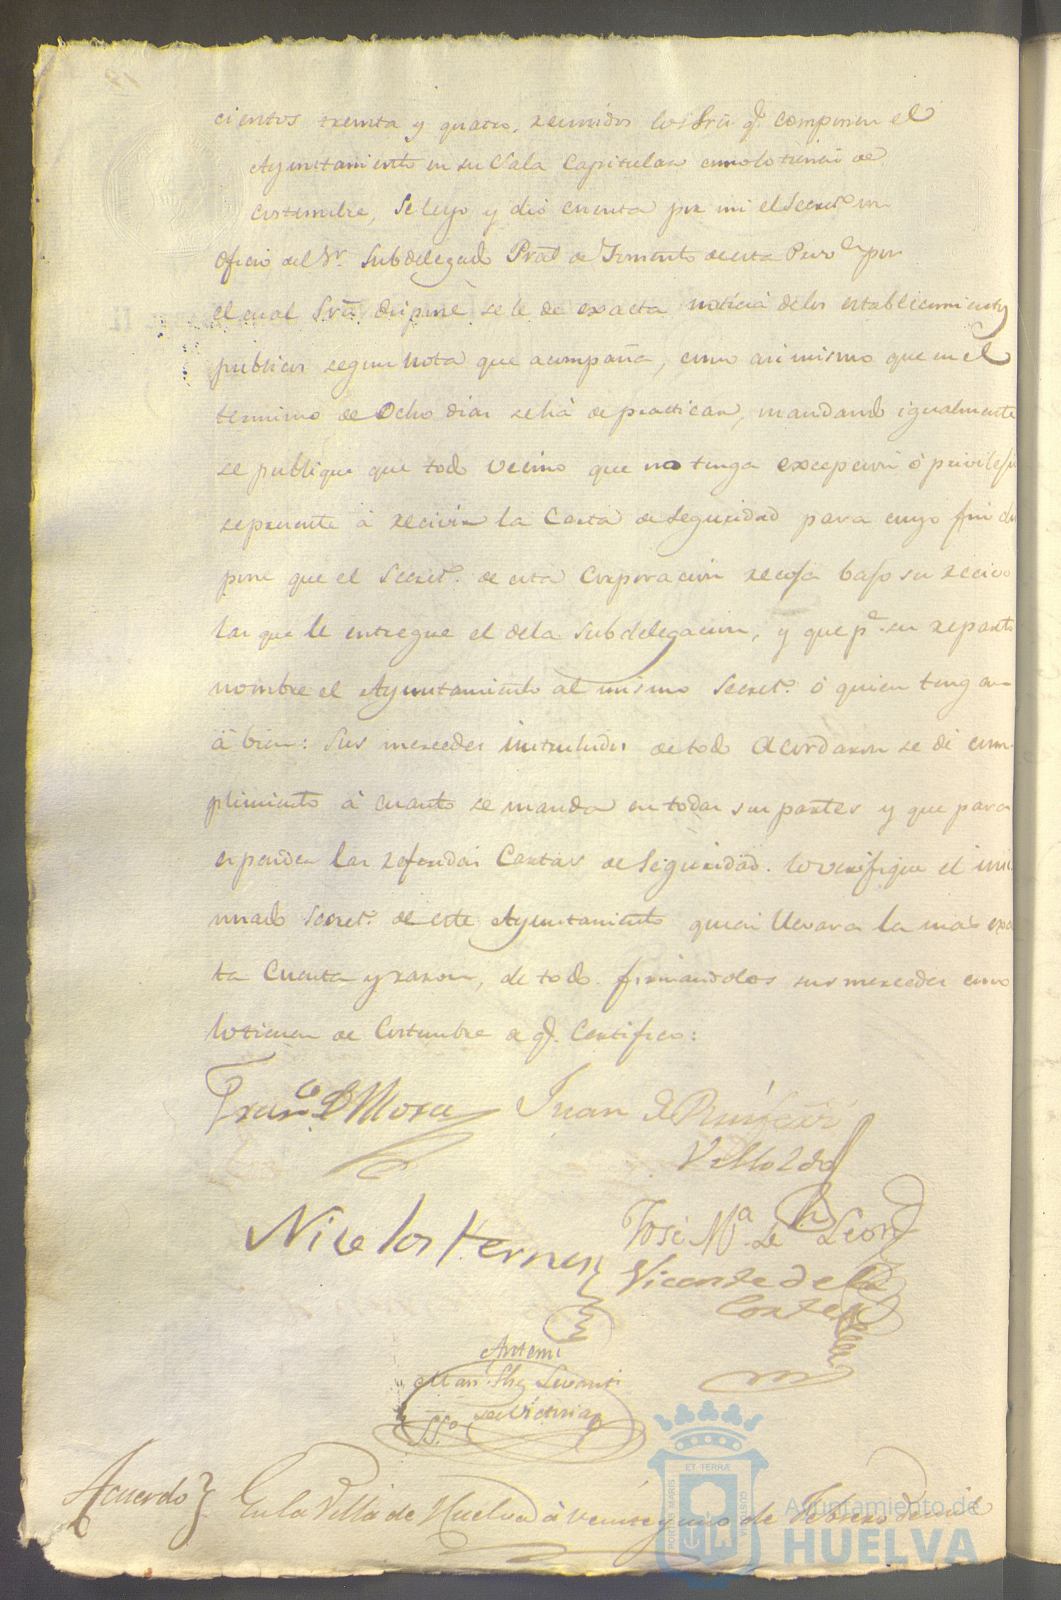 cientos treinta y quatro, reunidos los Srs. q. componen el
Ayuntamiento en su Sala Capitular como lo tienen de
Costumbre, se leyo y dio cuenta por mi el Secret.o un
Oficio del Sr. Subdelegado Pral. de Fomento de esta Prov.a por
el cual dispone se le de exacta noticia de los establecimientos
publicos segun nota que acompaña, como asimismo que en el
termino de Ocho dias se há de practicar, mandando igualmente
se publique que todo vecino que no tenga excepcion ó privilegio
se presente á recivir la Carta de Seguridad para cuyo fin dis
pone que el Secret.o de esta Corporacion recoja bajo su recivo
las que le entregue el dela Subdelegacion, y que p.a su reparto
nombre el Ayuntamiento al mismo Secret.o ó quien tenga
á bien: Sus mercedes instruidos de todo acordaron se dé cum
plimiento á cuanto se manda en todas sus partes y que para
espender las referidas Cartas de Seguridad lo verifique el
Secret.o de este Ayuntamiento quien llevara la mas exa
ta Cuenta y razon, de todo firmandolos sus mercedes como
lo tienen de Costumbre de q. Certifico:
Fran.co de Mora Juan de
Nicolos Hernan
José M.a de Leon
Vicente de la
Corte
Antemi
de Victoria
SSo.
Acuerdo
En la Villa de Huelva á veinte y uno de Febrero de mil
PORTUS MARIS
ET TERRÆ
CUSTODIA
Ayuntamiento de
HUELVA